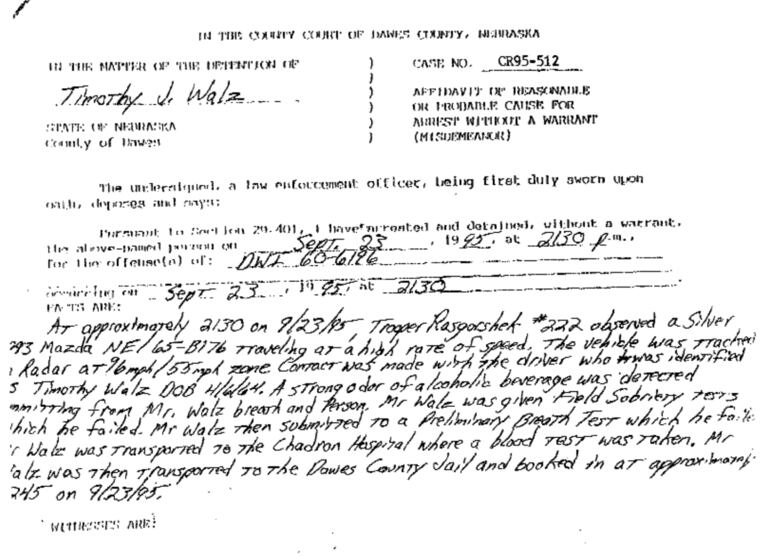 IN THE COUNTY COURT OF DAWES COUNTY, NEBRASKA
IN THE MATTER OF THE DETENTION OF ) CASE NO. CR95-512
)
Timothy J. Walz ) AFFIDAVIT OF REASONABLE
) OR PROBABLE CAUSE FOR
STATE OF NEBRASKA ) ARREST WITHOUT A WARRANT
County of Dawes ) (MISDEMEANOR)
The undersigned, a law enforcement officer, being first duly sworn upon
oath, deposes and says:
Pursuant to Section 29-401, I have arrested and detained, without a warrant,
the above-named person on Sept. 23, 1995, at 2130 p.m.,
for the offense(s) of: DWI 60-6196
occurring on Sept 23, 1995 at 2130
FACTS ARE:
At approximately 2130 on 9/23/95, Trooper Rasgorshek #222 observed a Silver
293 Mazda NE/65-B176 traveling at a high rate of speed. The vehicle was tracked
Radar at 96mph/55mph zone Contact was made with the driver who was identified
s Timothy Walz DOB 4/6/64. A strong odor of alcoholic beverage was detected
mmitting from Mr. Walz breath and Person. Mr Walz was given Field Sobriety tests
hich he failed. Mr Walz then submitted to a Preliminary Breath Test which he faile
r Walz was transported to the Chadron Hospital where a blood test was taken. Mr
alz was then transported to the Dawes County Jail and booked in at approximat
245 on 9/23/95.
WITNESSES ARE: